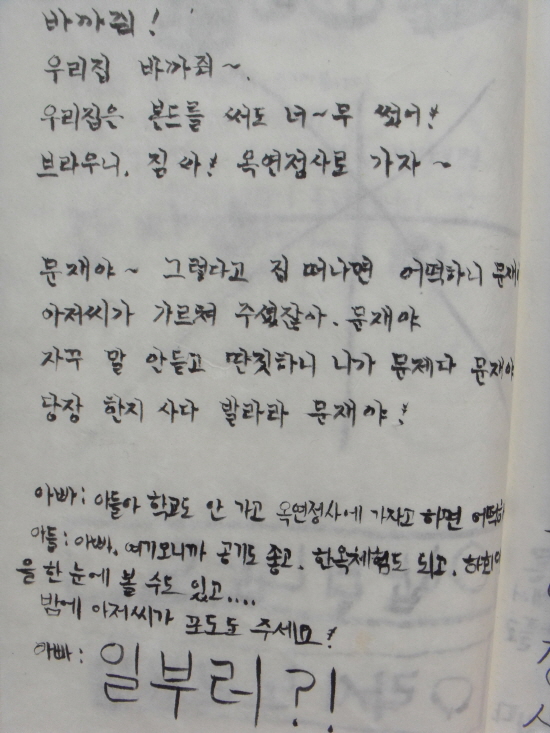 바까줘!
우리집 바까줘~.
우리집은 본드를 써도 너~무 썼어!
브라우니, 짐 싸! 옥연정사로 가자~
문재야~ 그렇다고 집 떠나면 어떡하니 문재
아저씨가 가르쳐 주셨잖아. 문재야
자꾸 말 안듣고 딴짓하니 니가 문제다 문재야
당장 한지 사다 발라라 문재야!
아빠: 아들아 학교도 안 가고 옥연정사에 가자고 하면 어떡
아들: 아빠, 여기오니까 공기도 좋고, 한옥체험도 되고, 하회
을 한 눈에 볼 수도 있고....
밤에 아저씨가 포도도 주세요!
아빠: 일부러?!